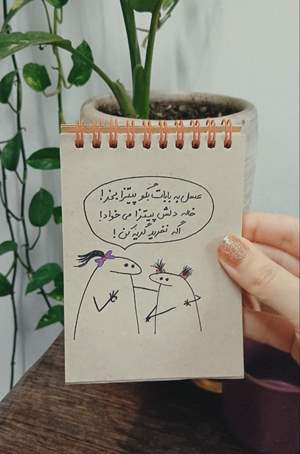 عسل به بابات بگو پیتزا بخر!
خاله دلش پیتزا می خواد!
اگه نخرید گریه کن!